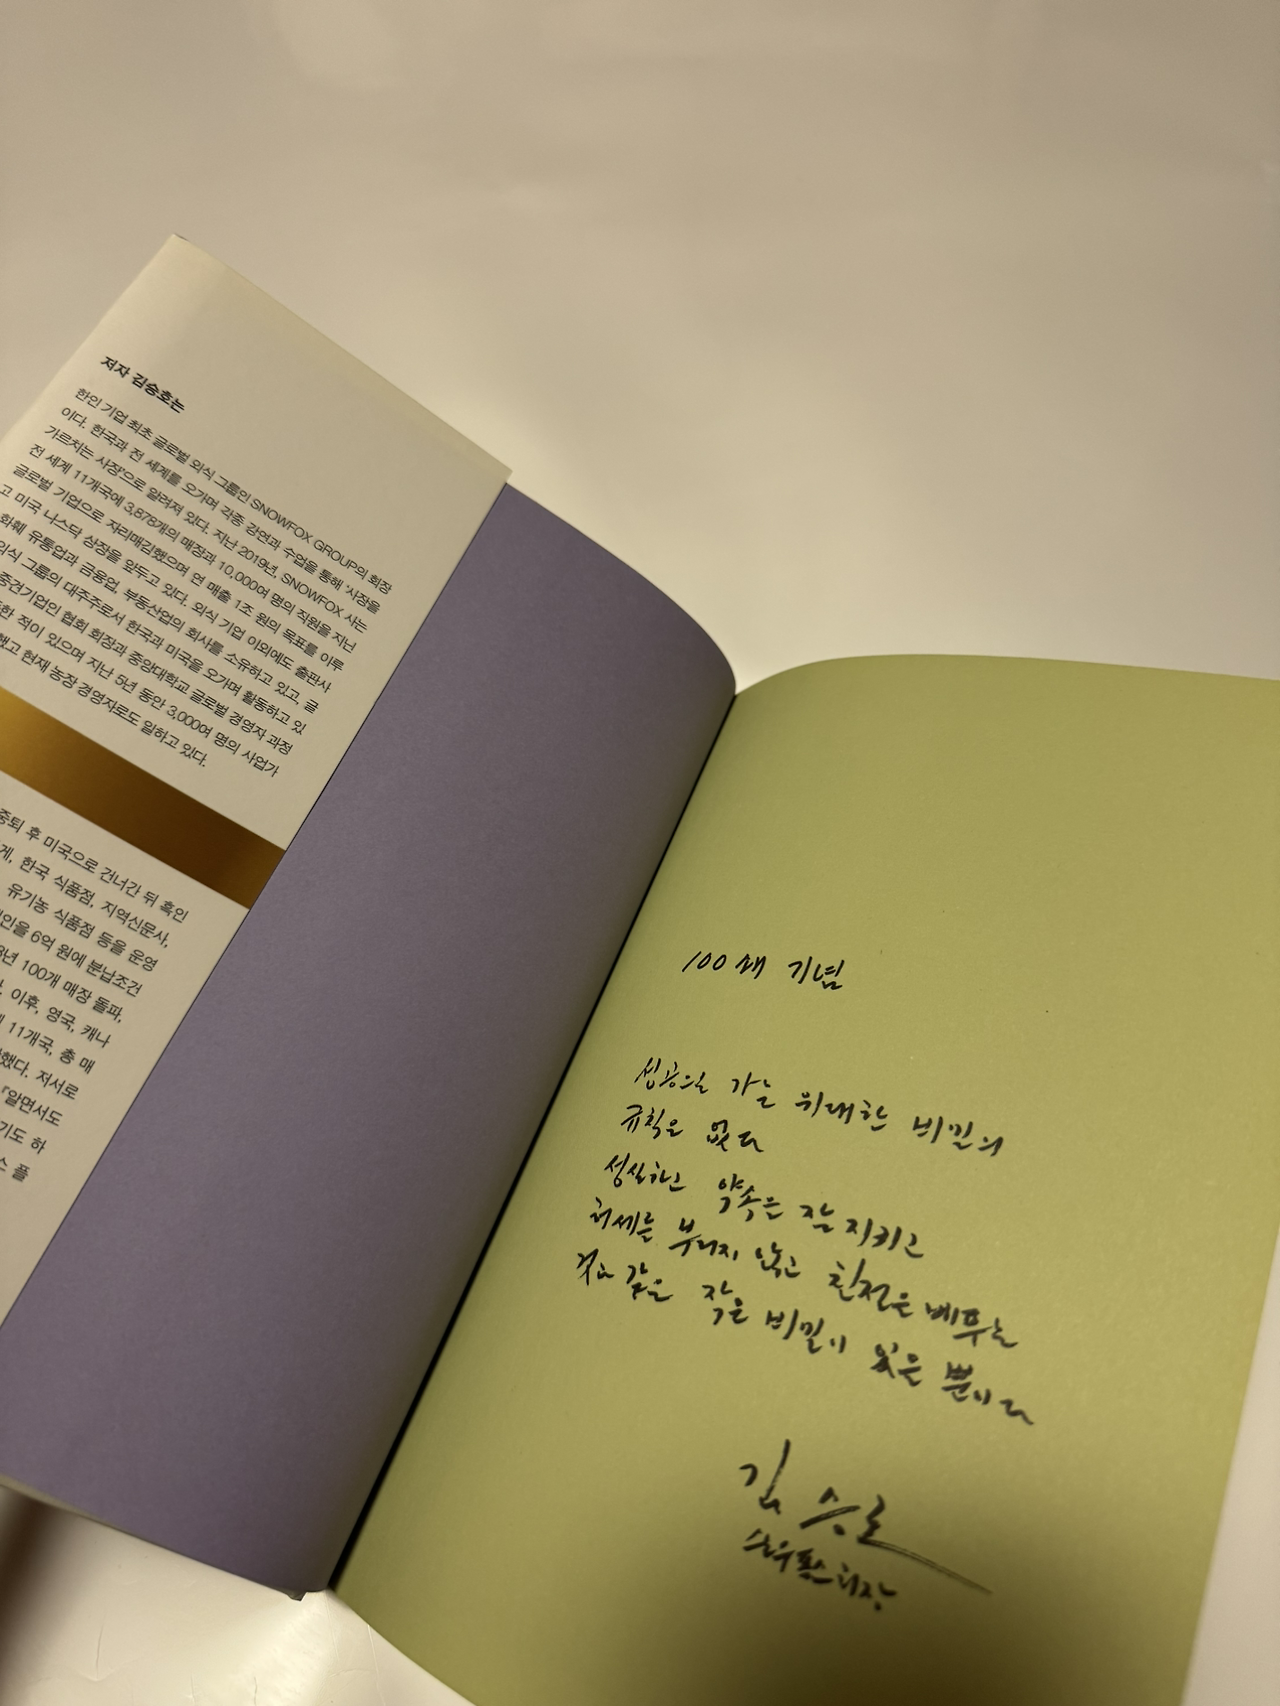 저자 김승호는
한인 기업 최초 글로벌 외식 그룹인 SNOWFOX GROUP의 회장
이다. 한국과 전 세계를 오가며 각종 강연과 수업을 통해 '사장을
가르치는 사장'으로 알려져 있다. 지난 2019년, SNOWFOX 사는
전 세계 11개국에 3,878개의 매장과 10,000여 명의 직원을 지닌
글로벌 기업으로 자리매김했으며 연 매출 1조 원의 목표를 이루
고 미국 나스닥 상장을 앞두고 있다. 외식 기업 이외에도 출판사
화훼 유통업과 금융업, 부동산업의 회사를 소유하고 있고, 글
외식 그룹의 대주주로서 한국과 미국을 오가며 활동하고 있
중견기업인 협회 회장과 중앙대학교 글로벌 경영자 과정
한 적이 있으며 지난 5년 동안 3,000여 명의 사업가
했고 현재 농장 경영자로도 일하고 있다.
중퇴 후 미국으로 건너간 뒤 흑인
게, 한국 식품점, 지역신문사,
유기농 식품점 등을 운영
인을 6억 원에 분납조건
8년 100개 매장 돌파,
이후, 영국, 캐나
11개국, 총 매
했다. 저서로
『알면서도
기도 하
스 플
100쇄 기념
성공으로 가는 위대한 비밀의
규칙은 없다
성실하고 약속은 잘 지키고
허세를 부리지 않고 친절은 베푸는
것과 같은 작은 비밀이 있을 뿐이다
김승호
스노우폭스 회장